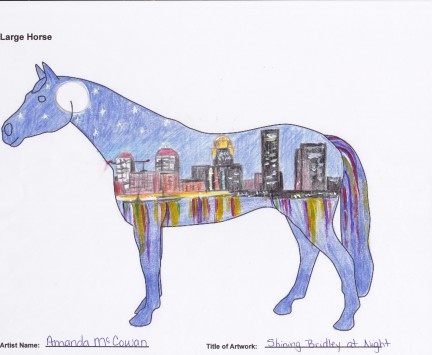 Large Horse
Artist Name: Amanda McCowan Title of Artwork: Shining Bridley at Night